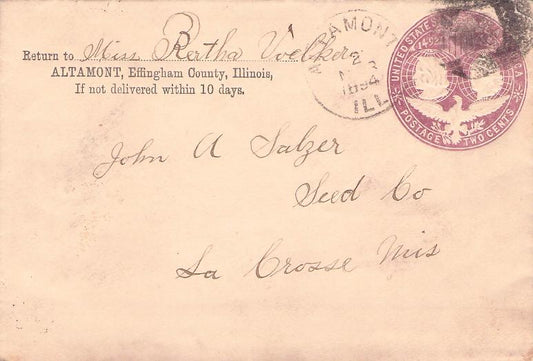 Return to Miss Bertha Voelkera
ALTAMONT, Effingham County, Illinois,
If not delivered within 10 days.
ALTAMONT
1894
ILL
UNITED STATES
POSTAGE TWO CENTS
John A Salzer
Seed Co
La Crosse Wis